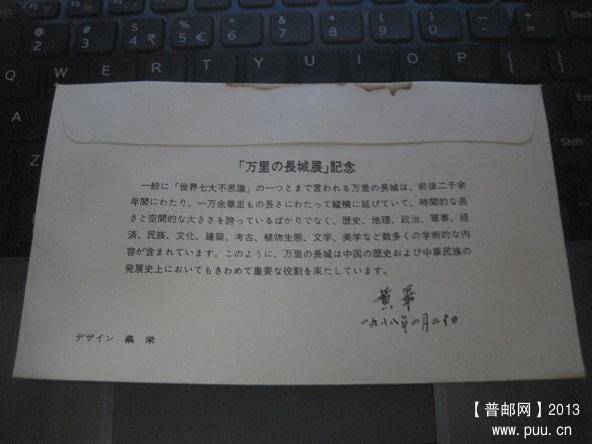 @
2
#
3
$
4
₹
%
5
€
^
6
&
7
*
8
(
9
)
0
Q W E R T Y U I O P
A
Shift
「万里の長城展」記念
一般に「世界七大不思議」の一つとまで言われる万里の長城は、前後二千余
年間にわたり、一万余華里もの長さにわたって縦横に延びていて、時間的な長
さと空間的な大きさを誇っているばかりでなく、歴史、地理、政治、軍事、経
済、民族、文化、建築、考古、植物生態、文学、美学など数多くの学術的な内
容が含まれています。このように、万里の長城は中国の歴史および中華民族の
発展史上においてもきわめて重要な役割を果たしています。
黄華
一九八八年
デザイン 栄
【普邮网】2013
www.puu.cn